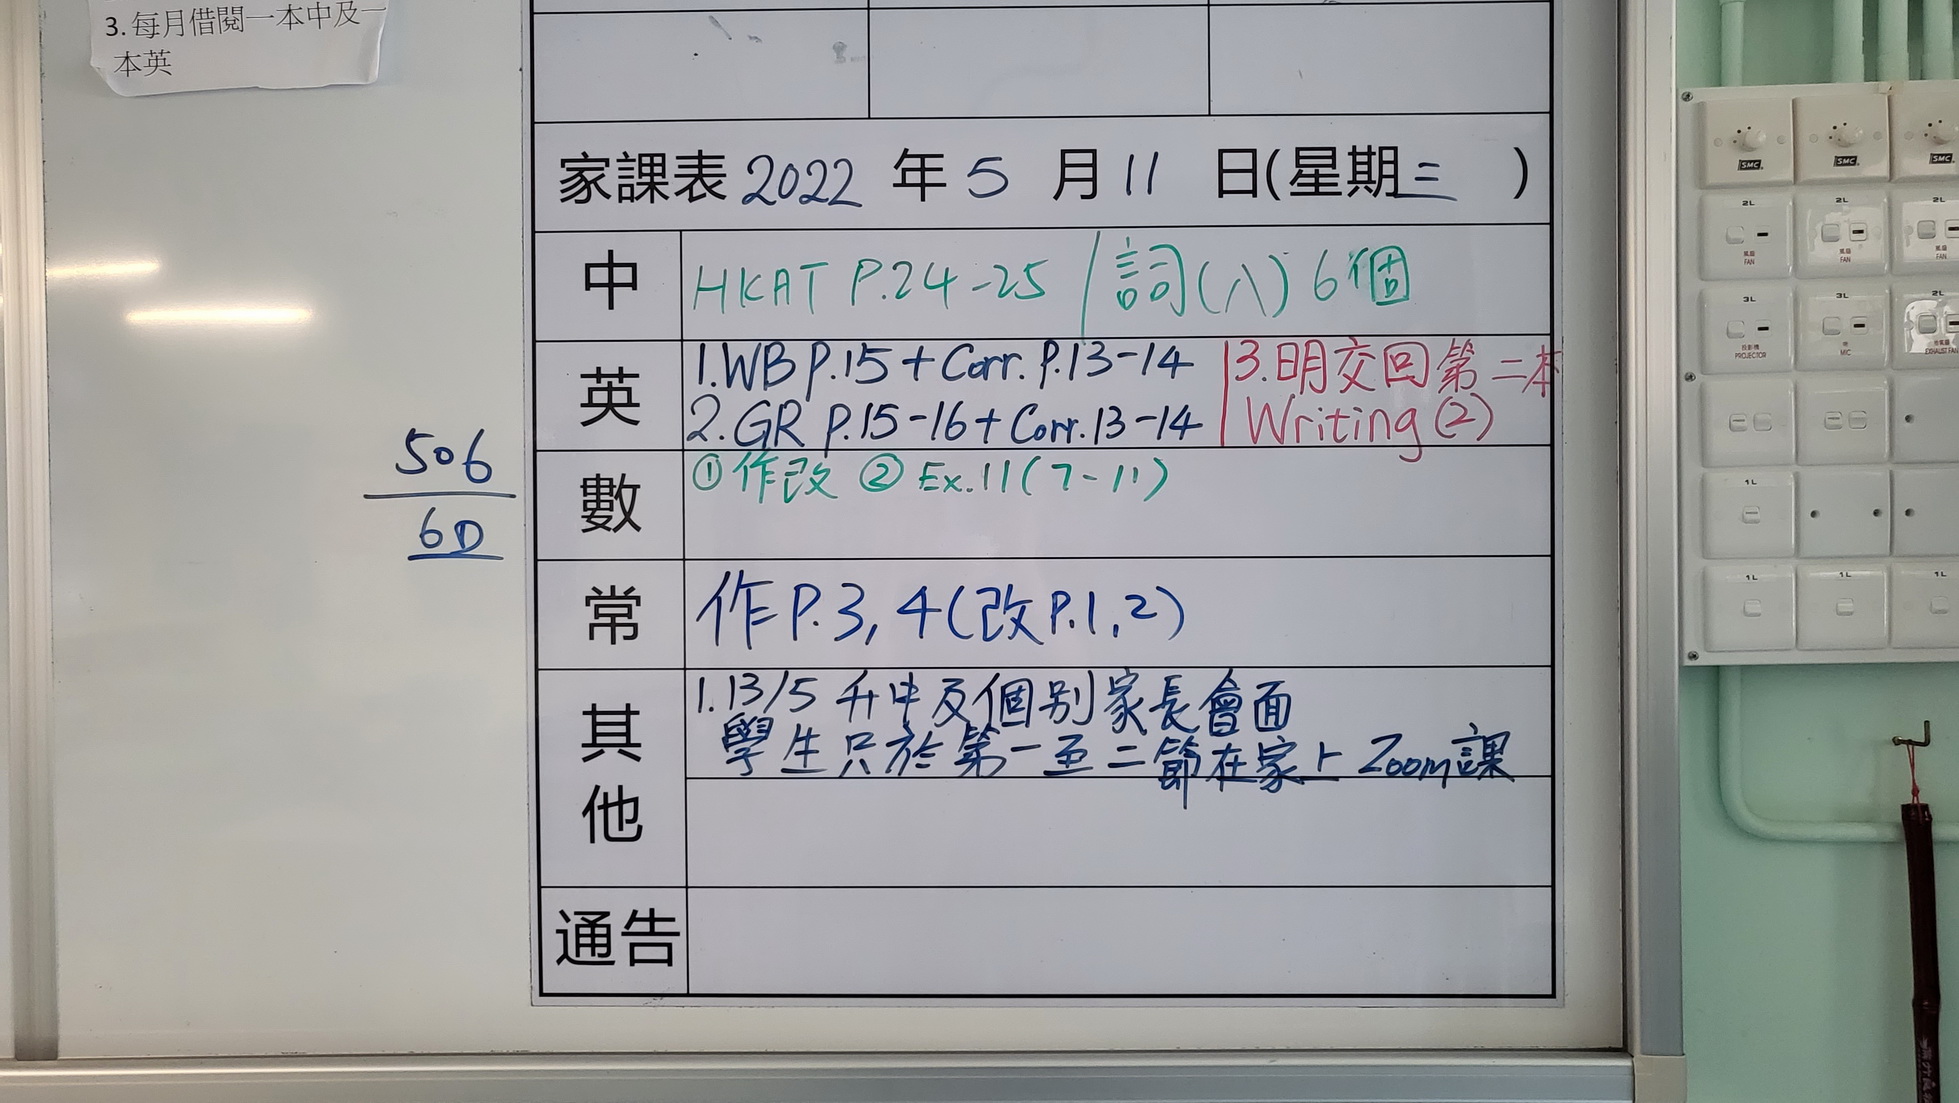 3. 每月借閱一本中及一
本英
家課表 2022 年 5 月 11 日(星期三 )
中 HKAT P.24-25 / 詞(八) 6個
英 1.WB P.15 + Corr. P.13-14 3.明交回第二本
2.GR P.15-16 + Corr.13-14 Writing (2)
506
6D
數 ①作改 ② Ex.11(7-11)
常 作P.3, 4(改P.1,2)
其他 1.13/5 升中及個別家長會面
學生只於第一至二節在家上Zoom課
通告
SMC SMC SMC
2L 2L 2L
風扇 風扇 風扇
FAN FAN FAN
3L 3L 2L
投影機 咪 抽氣扇
PROJECTOR MIC EXHAUST FAN
1L
1L 1L 1L